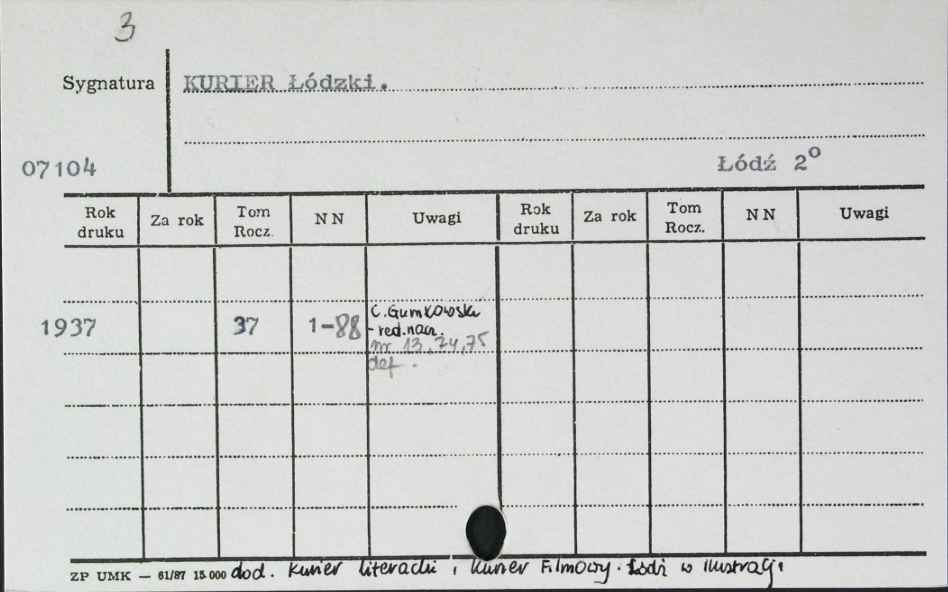 3
Sygnatura KURIER Łódzki.
07104
Łódź 2°
Rok druku Za rok Tom Rocz. NN Uwagi Rok druku Za rok Tom Rocz. NN Uwagi
1937 37 1-88 C. Gumkowski
- red. nacz.
nr 13, 74, 75
def.
ZP UMK — 61/87 15.000 dod. Kurier literacki, Kurier Filmowy. Łódź w Ilustracji